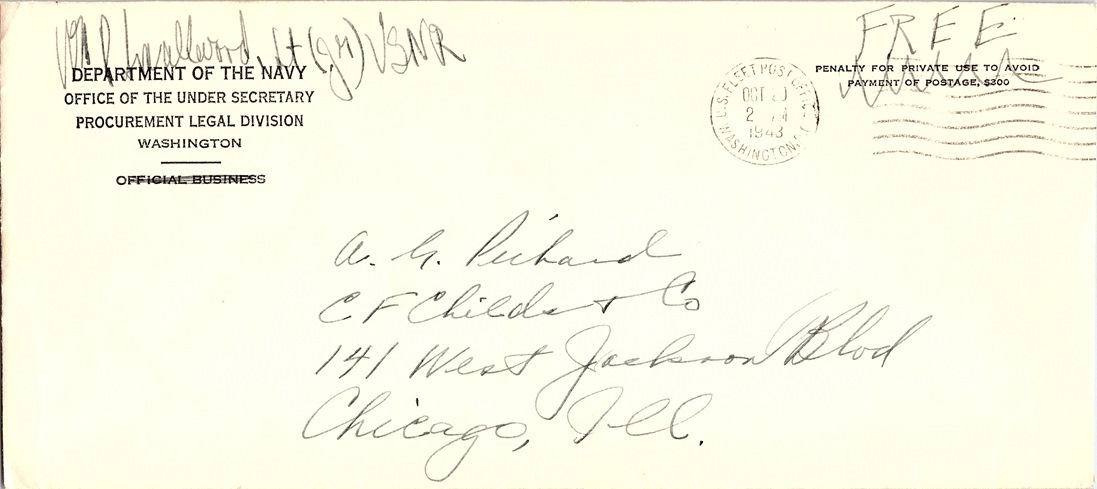 Smallwood, Lt (jg) USNR
DEPARTMENT OF THE NAVY
OFFICE OF THE UNDER SECRETARY
PROCUREMENT LEGAL DIVISION
WASHINGTON
OFFICIAL BUSINESS
FREE
PENALTY FOR PRIVATE USE TO AVOID
PAYMENT OF POSTAGE, $300
U.S. FLEET POST OFFICE
OCT
2
1943
WASHINGTON
A. G. Pichard
C F Childs & Co
141 West Jackson Blvd
Chicago, Ill.